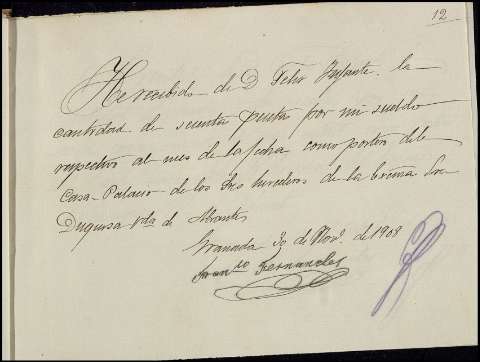 12
He recibido de D. Felix Infante la
cantidad de sesenta pesetas por mi sueldo
respectivo al mes de la fecha como portero de la
Casa-Palacio de los Sres herederos de la Excma Sra
Duquesa Vda de Abrantes
Granada 30 de Novre de 1908
Franco Fernandez